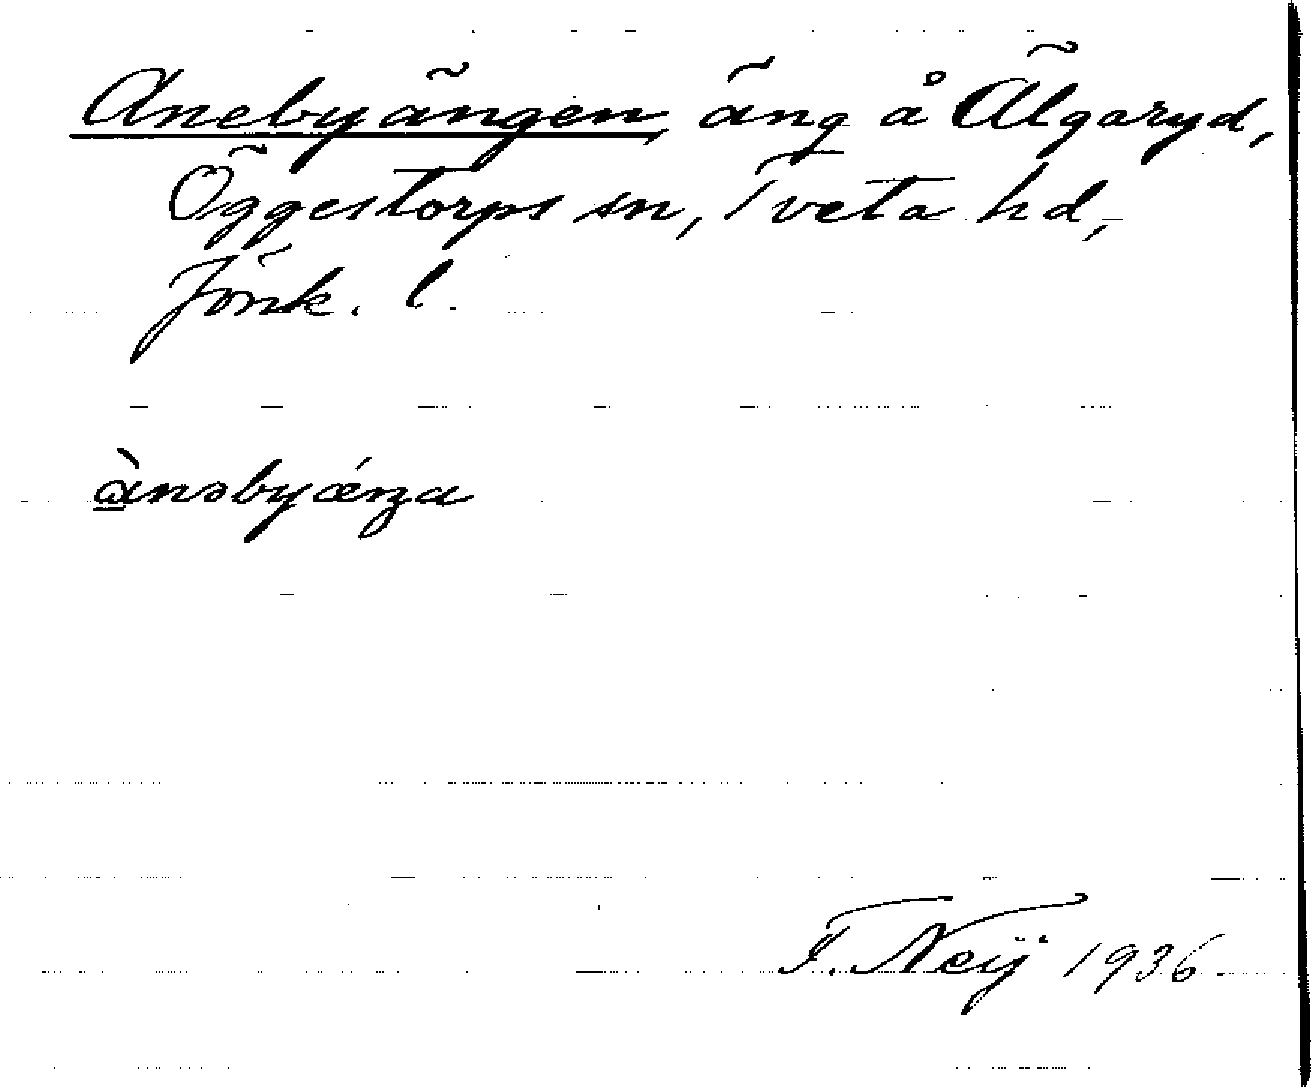 Anebyängen, äng å Älgaryd,
Öggestorps sn, Tveta hd,
Jönk. l.
ànəbyǽŋa
F. Neij 1936.